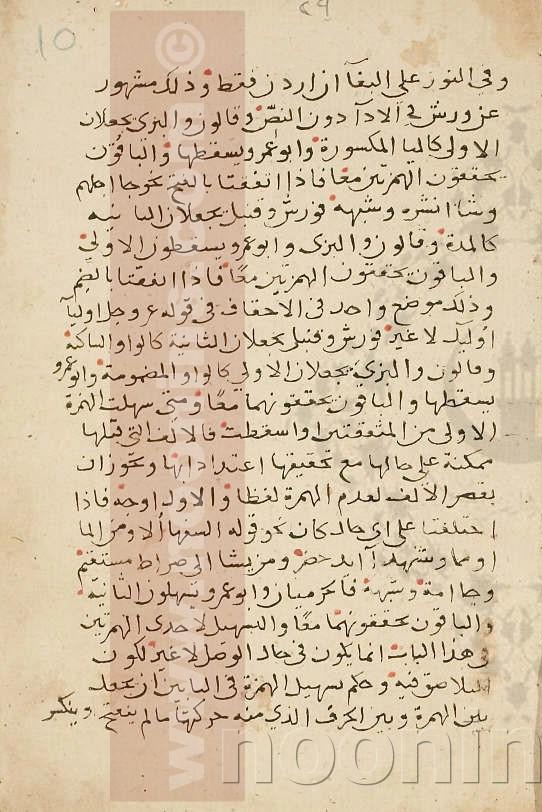 29
10
وفي النور على البغآ ان اردن فقط وذلك مشهور
عن ورش في الادآ دون النص وقالون والبزى يجعلان
الاولى كاليا المكسورة وابو عمرو يسقطها والباقون
يحققون الهمزتين معا فاذا اتفقتا بالفتح نحو جا اجلهم
وشا انشره وشبهه فورش وقنبل يجعلان الثانيه
كالمدة وقالون والبزى وابو عمرو يسقطون الاولى
والباقون يحققون الهمزتين معا فاذا اتفقتا بالضم
وذلك موضع واحد في الاحقاف في قوله عز وجل اوليآ
اوليك لا غير فورش وقنبل يجعلان الثانية كالواو الساكنة
وقالون والبزي يجعلان الاولى كالواو المضمومة وابو عمرو
يسقطها والباقون يحققونهما معا ومتى سهلت الهمزة
الاولى من المتفقتين او اسقطت فالالف التي قبلها
ممكنة على حالها مع تحقيقها اعتدادا بها ويجوز ان
يقصر الالف لعدم الهمزة لفظا والاول اوجه فاذا
اختلفتا على اى حال كان نحو قوله السفهآ الا ومن الما
او مما وشهدآ اذ حضر ومن يشا الى صراط مستقيم
وجا امة وشبهه فالحرميان وابو عمرو يسهلون الثانية
والباقون يحققونهما معا والتسهيل لاحدى الهمزتين
في هذا الباب انما يكون في حال الوصل لا غير لكون
التلاصق فيه وحكم تسهيل الهمزة في البابين ان يجعل
بين الهمزة وبين الحرف الذي منه حركتها ما لم ينفتح وينكسر
www.noonino.com ©
noonin